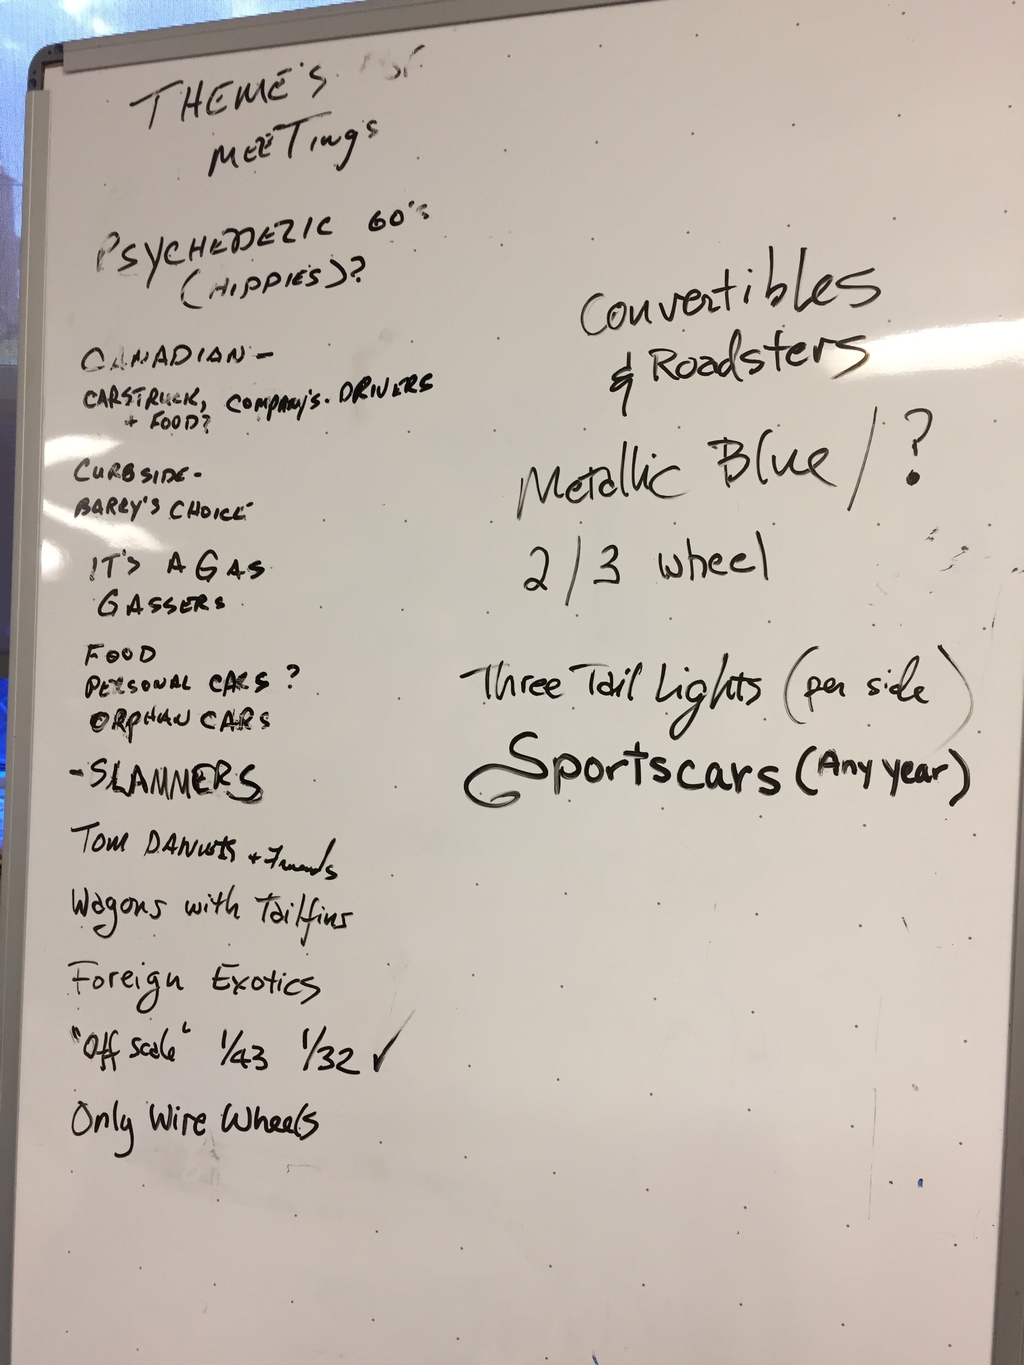 THEME'S for
MEETings
PSYCHEDELIC 60's
(HIPPIES)?
CANADIAN -
CARSTRUCK, COMPANY'S. DRIVERS
+ FOOD?
CURBSIDE -
BARRY'S CHOICE
IT'S A GAS
GASSERS
FOOD
PERSONAL CARS ?
ORPHAN CARS
- SLAMMERS
TOM + Friends
Wagons with Tailfins
Foreign Exotics
"Off scale" 1/43 1/32 ✓
Only Wire Wheels
Convertibles
& Roadsters
Metallic Blue / ?
2/3 wheel
Three Tail Lights (per side)
Sportscars (Any year)